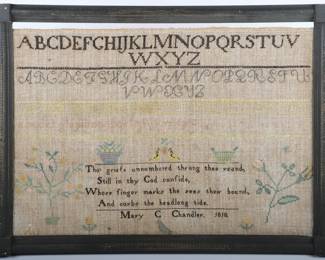 ABCDEFGHIJKLMNOPQRSTUV
WXYZ
ABCDEFGHIJKLMNOPQRSTU
VWXYZ
Tho griefs unnumbered throng thee round,
Still in thy God confide,
Whose finger marks the seas their bound,
And curbs the headlong tide.
Mary C Chandler.